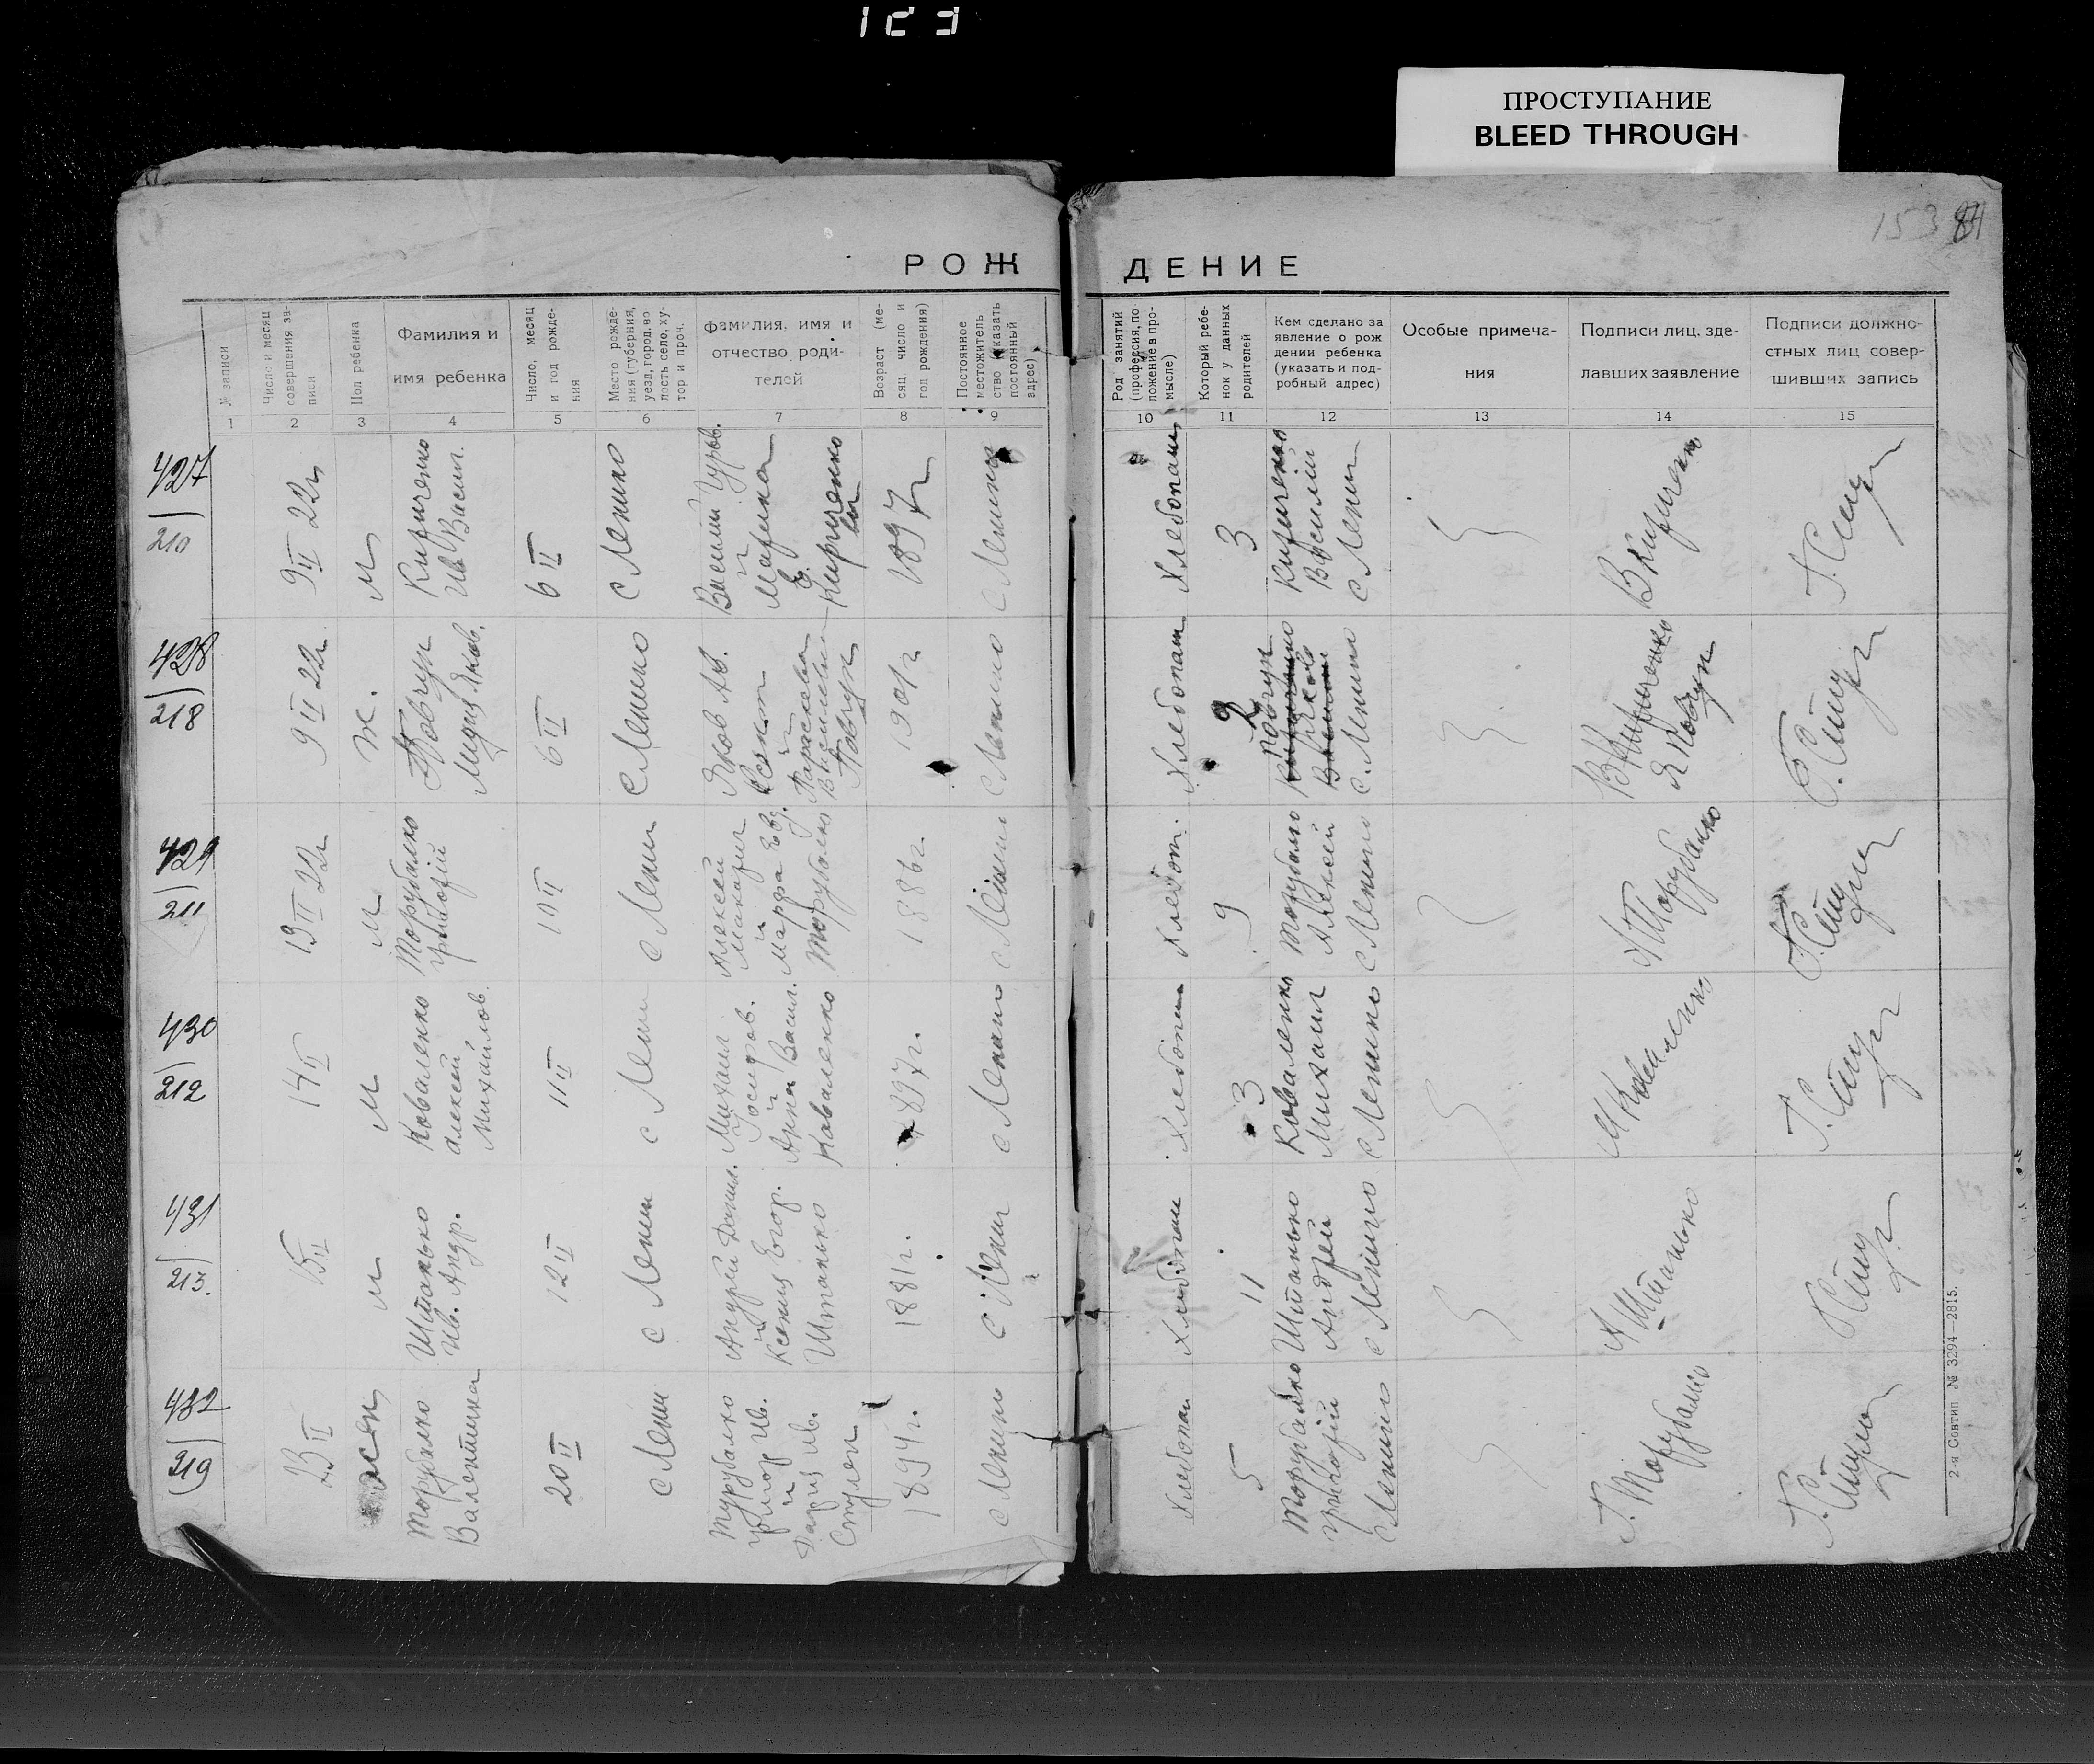 123
ПРОСТУПАНИЕ
BLEED THROUGH
153 81
РОЖДЕНИЕ
№ записи
Число и месяц
совершения за-
писи
Пол ребенка
Фамилия и
имя ребенка
Число, месяц
и год рожде-
ния
Место рожде-
ния (губерния,
уезд, город, во-
лость село, ху-
тор и проч.
фамилия, имя и
отчество роди-
телей
Возраст (ме-
сяц число и
год рождения)
Постоянное
местожитель
ство (указать
постоянный
адрес)
Род занятий
(профессия, по-
ложение в про-
мысле)
Который ребе-
нок у данных
родителей
Кем сделано за
явление о рож
дении ребенка
(указать и под-
робный адрес)
Особые примеча-
ния
Подписи лиц, зде-
лавших заявление
Подписи должно-
стных лиц совер-
шивших запись
1 2 3 4 5 6 7 8 9 10 11 12 13 14 15
427
210
9 II 22г
м
Кириченко
Ив Васил.
6 II
с Ленино
Василий Гуров.
и
Марина
Кириченко
1897г
с Ленино
Хлебопаш
3
Кириченко
Василий
с Ленин
В Кириченко
428
218
9 II 22г
Ж.
Повгун
Лидия Яков.
6 II
с Ленино
Яков Ав.
и
Параскева
Василии
Повгун
1901г
с Ленино
Хлебопаш
2
Повгун
Яков
с. Ленино
В Кириченко
Я Повгун
429
211
13 II 22г
м
Торубалко
Григорий
10 II
с Ленин
Алексей
Макарич
и
Марфа Ев.
Торубалко
1886г.
с Ленино
Хлебоп.
9
Торубалко
Алексей
с Ленино
А Торубалко
430
212
14 II
м
Коваленко
Алексей
Михайлов.
11 II
с Ленин
Михаил
и
Анна Васил.
Коваленко
1897г.
с Ленино
Хлебопаш
3
Коваленко
Михаил
с Ленино
М Коваленко
431
213.
15 II
м
Штанько
Ив. Андр.
12 II
с Ленин
Андрей Данил.
и
Ксения Егор.
Штанько
1881г.
с Ленин
Хлебопаш
11
Штанько
Андрей
с Ленино
А Штанько
432
219
23 II
жен
Торубалко
Валентина
20 II
с Ленин
Турубалко
Григор Ив.
и
Дария Ив.
1894г.
с Ленино
Хлебопаш
5
Торубалко
Григорий
с Ленино
Г. Торубалко
2-я Совтип № 3294—2815.